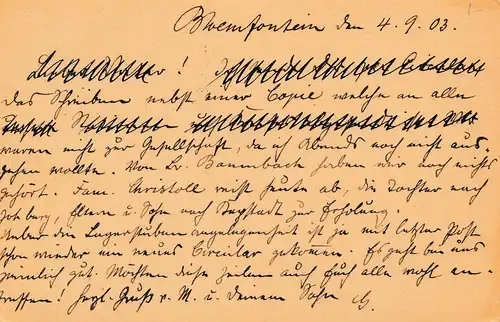 Bloemfontein den 4.9.03.
!
das Schreiben nebst einer Copie welche an alle
waren nicht zur Gesellschaft, da ich Abends noch nicht aus-
gehen wollte. Von Br. Baumbach haben wir noch nichts
gehört. Fam. Christoll reist heute ab, die Tochter nach
Joh.burg, Eltern u. Sohn nach Kapstadt zur Erholung.
Ueber die angelegenheit ist ja mit letzter Post
schon wieder ein neues Circular gekommen. Es geht bei uns
ziemlich gut. Möchten diese Zeilen auch Euch alle wohl an-
treffen! Herzl. Gruß v. M. u. deinem Sohn G.